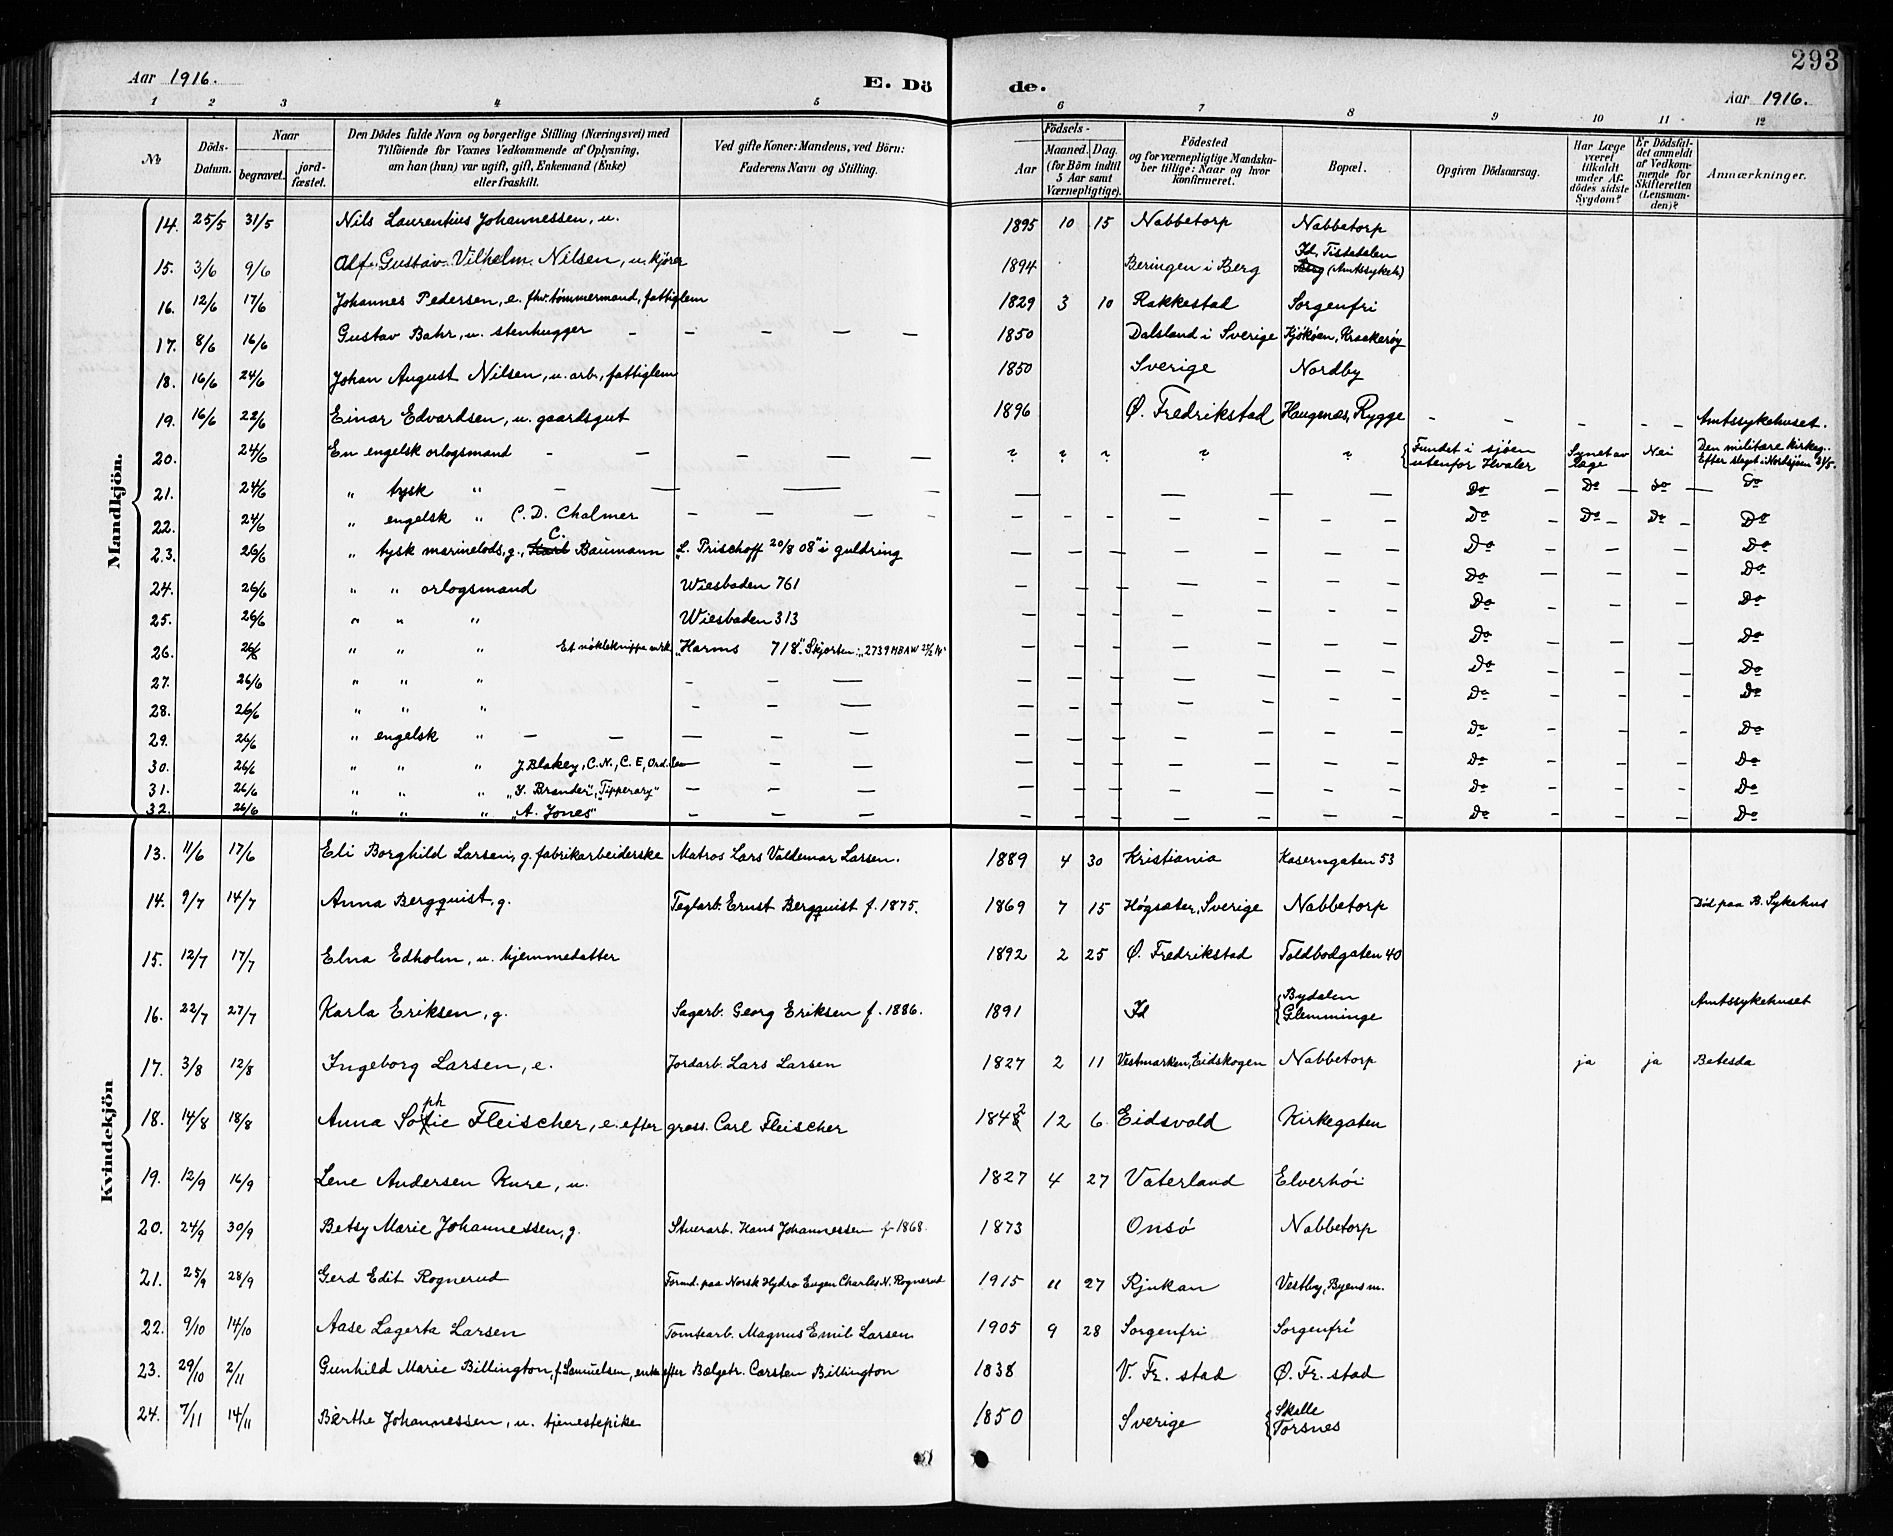 293
Aar 1916. E. Dö de. Aar 1916.
1 2 3 4 5 6 7 8 9 10 11 12
No
Döds-Datum.
Naar
begravet.
jord-fæstet.
Den Dödes fulde Navn og borgerlige Stilling (Næringsvei) med
Tilföiende for Voxnes Vedkommende af Oplysning,
om han (hun) var ugift, gift, Enkemand (Enke)
eller fraskilt.
Ved gifte Koner: Mandens, ved Börn:
Faderens Navn og Stilling.
Födsels-
Aar
Maaned. Dag.
(for Börn indtil
5 Aar samt
Værnepligtige).
Födested
og for værnepligtige Mandska-
ber tillige: Naar og hvor
konfirmeret.
Bopæl.
Opgiven Dödsaarsag.
Har Læge
været
tilkaldt
under Af-
dödes sidste
Sygdom?
Er Dödsfal-
det anmeldt
af Vedkom-
mende for
Skifteretten
(Lensman-
den)?
Anmærkninger.
Mandkjön.
14. 25/5 31/5 Nils Laurentius Johannessen, u. 1895 10 15 Nabbetorp Nabbetorp
15. 3/6 9/6 Alf Gustav Vilhelm Nilsen, u. kjører 1894 Beringen i Berg Id, Tistedalen
Berg (Amtssykeh)
16. 12/6 17/6 Johannes Pedersen, e. fhv. tømmermand, fattiglem 1829 3 10 Rakkestad Sorgenfri
17. 8/6 16/6 Gustav Bahr, u. stenhugger — — — — — 1850 Dalsland i Sverige Kjøkøen, Kraakerøy
18. 16/6 24/6 Johan August Nilsen, u. arb, fattiglem 1850 Sverige Nordby
19. 16/6 22/6 Einar Edvardsen, u. gaardsgut 1896 Ø. Fredrikstad Haugenæs, Rygge — — — — Amtssykehuset.
20. 24/6 En engelsk orlogsmand — — — — — ? ? ? ? ? Fundet i sjøen
utenfor Hvaler Synet av
læge Nei Den militære kirkeg..
Efter slaget i Nordsjøen 31/5.
21. 24/6 " tysk " — — — — — Do — Do — do — Do
22. 24/6 " engelsk " C. D. Chalmer — — — — Do — Do — Do — Do
23. 26/6 " tysk marinelods, g., Karl C. Baumann „L. Prischoff 20/8 08" i guldring — Do — — — Do
24. 26/6 " " orlogsmand Wiesbaden 761 — Do — — — Do
25. 26/6 " " " Wiesbaden 313 — Do — — — Do
26. 26/6 " " " Et nøkleknippe mrk. „Harms 718". Skjorten: „2739 MBAW — Do — — — Do
27. 26/6 " " " — — — Do — — — Do
28. 26/6 " " " — — — Do — — — Do
29. 26/6 " engelsk " — — — — — Do — — — Do
30. 26/6 " " " J Blakey, C. N., C. E, Ord. Sea — — — Do — — — Do
31. 26/6 " " " „ Brander", „Tipperary" — — — Do — — — Do
32. 26/6 " " " „A. Jones" — — — Do — — — Do
Kvindekjön
13. 11/6 17/6 Eli Borghild Larsen, g. fabrikarbeiderske Matros Lars Valdemar Larsen. 1889 4 30 Kristiania Kaserngaten 53
14. 9/7 14/7 Anna Bergquist, g. Teglarb. Ernst Bergquist f. 1875. 1869 7 15 Høgsater, Sverige Nabbetorp Død paa B. Sykehus
15. 12/7 17/7 Elna Edholm, u. hjemmedatter 1892 2 25 Ø. Fredrikstad Toldbodgaten 40
16. 22/7 27/7 Karla Eriksen, g. Sagarb. Georg Eriksen f. 1886. 1891 Id Bydalen
Glemminge Amtssykehuset
17. 3/8 12/8 Ingeborg Larsen, e. Jordarb. Lars Larsen 1827 2 11 Vestmarken, Eidskogen Nabbetorp ja ja Betesda
18. 14/8 18/8 Anna Sophie Fleischer, e. efter gross. Carl Fleischer 1842 12 6 Eidsvold Kirkegaten
19. 12/9 16/9 Lene Andersen Kure, u. 1827 4 27 Vaterland Elverhøi
20. 24/9 30/9 Betsy Marie Johannessen, g. Stuerarb. Hans Johannessen f. 1868. 1873 Onsø Nabbetorp
21. 25/9 28/9 Gerd Edit Rognerud Formd. paa Norsk Hydro Eugen Charles N. Rognerud 1915 11 27 Rjukan Vestby, Byens m.
22. 9/10 14/10 Aase Lagerta Larsen Tomtearb. Magnus Emil Larsen 1905 9 28 Sorgenfri Sorgenfri
23. 29/10 2/11 Gunhild Marie Billington, f. Samuelsen, enke efter Bælgetr. Carsten Billington 1838 V. Fr. stad Ø. Fr. stad
24. 7/11 14/11 Berthe Johannessen, u. tjenestepike 1850 Sverige Skelle
Torsnes